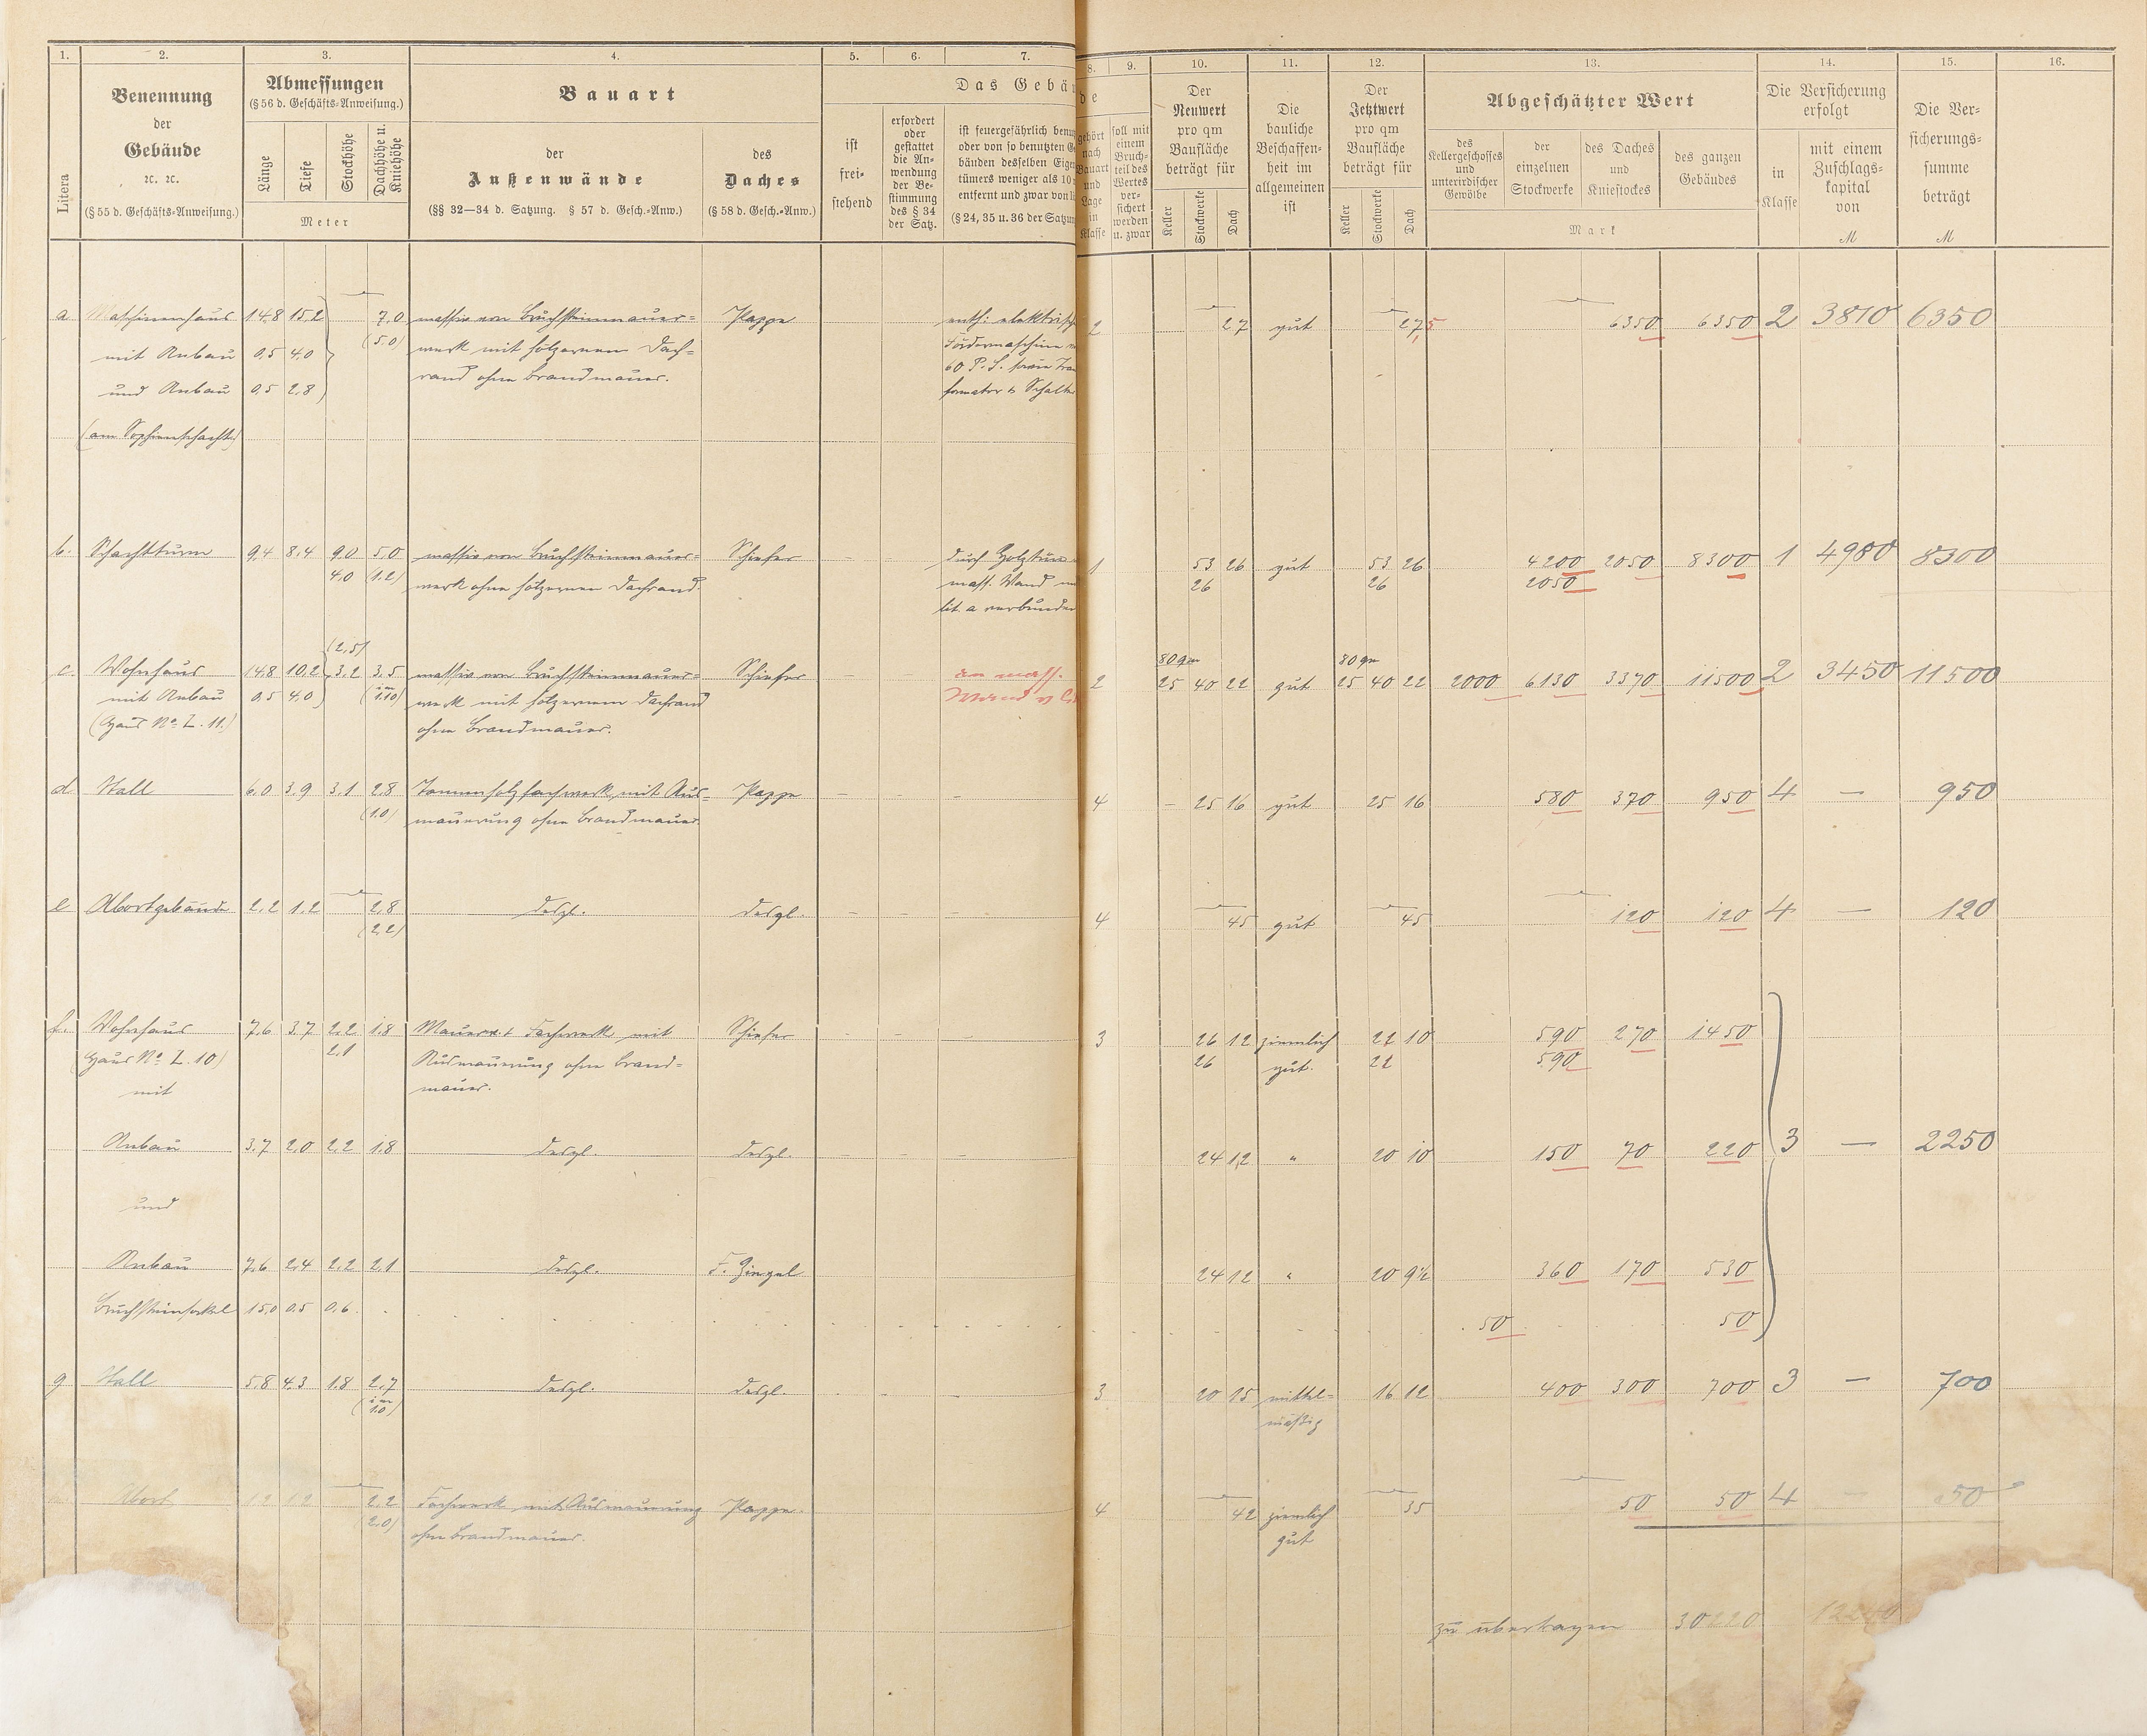 1. 2. 3. 4. 5. 6. 7. 8. 9. 10. 11. 12. 13. 14. 15. 16.
Litera
Benennung
der
Gebäude
ꝛc. ꝛc.
(§ 55 d. Geschäfts-Anweisung.)
Abmessungen
(§ 56 d. Geschäfts-Anweisung.)
Länge
Tiefe
Stockhöhe
Dachhöhe u.
Kniehöhe
Meter
Bauart
der
Außenwände
(§§ 32—34 d. Satzung. § 57 d. Gesch.-Anw.)
des
Daches
(§ 58 d. Gesch.-Anw.)
Das Gebäu
de
ist
frei-
stehend
erfordert
oder
gestattet
die An-
wendung
der Be-
stimmung
des § 34
der Satz.
ist feuergefährlich benu
oder von so benutzten G
bäuden desselben Eigen
tümers weniger als 10
entfernt und zwar von li
(§ 24, 35 u. 36 der Satzun
gehört
nach
Bauart
und
Lage
in
Klasse
soll mit
einem
Bruch-
teil des
Wertes
ver-
sichert
werden
u. zwar
Der
Neuwert
pro qm
Baufläche
beträgt für
Keller
Stockwerke
Dach
Die
bauliche
Beschaffen-
heit im
allgemeinen
ist
Der
Jetztwert
pro qm
Baufläche
beträgt für
Keller
Stockwerke
Dach
Abgeschätzter Wert
des
Kellergeschosses
und
unterirdischer
Gewölbe
der
einzelnen
Stockwerke
des Daches
und
Kniestockes
des ganzen
Gebäudes
Mark
Die Versicherung
erfolgt
in
Klasse
mit einem
Zuschlags-
kapital
von
M
Die Ver-
sicherungs-
summe
beträgt
M
a Maschinenhaus 14,8 15,2 7,0 massiv von Bruchsteinmauer= Pappe enth: elektrisch 2 27 gut 27,5 6350 6350 2 3810 6350
mit Anbau 0,5 4,0 (5,0) werk mit hölzernem Dach= Fördermaschine
und Anbau 0,5 2,8 rand ohne Brandmauer. 60 P.S. sowie Tra
formator & Schalt
(am Sophienschacht)
b. Schachtturm 9,4 8,4 9,0 5,0 massiv von Bruchsteinmauer= Schiefer — — durch Holztür 1 53 26 gut 53 26 4200 2050 8300 1 4980 8300
4,0 (1,2) werk ohne hölzernen Dachrand. mass. Wand 26 26 2050
lit. a verbunden
(2,5) 80 qm 80 qm
c. Wohnhaus 14,8 10,2 3,2 3,5 massiv von Bruchsteinmauer= Schiefer — — an mass. 2 25 40 22 gut 25 40 22 2000 6130 3370 11500 2 3450 11500
mit Anbau 0,5 4,0 (im 1,10) werk mit hölzernem Dachrand Wand
(Haus No. L. 11.) ohne Brandmauer.
d Stall 6,0 3,9 3,1 2,8 Tannenholzfachwerk, mit Aus= Pappe — — — 4 — 25 16 gut 25 16 580 370 950 4 — 950
(1,0) mauerung ohne Brandmauer.
e Abortgebäude 2,2 1,2 2,8 desgl. desgl. — — — 4 45 gut 45 120 120 4 — 120
(2,2)
f. Wohnhaus 7,6 3,7 2,2 1,8 Mauer & Fachwerk mit Schiefer — — — 3 26 12 ziemlich 22 10 590 270 1450
(Haus No. L. 10) 2,1 Ausmauerung ohne Brand= 26 gut. 22 590
mit mauer.
Anbau 3,7 2,0 2,2 1,8 desgl. desgl. — — 24 12 " 20 10 150 70 220 3 — 2250
und
Anbau 7,6 2,4 2,2 2,1 desgl. F. Ziegel 24 12 " 20 9½ 360 170 530
Bruchsteinsockel 15,0 0,5 0,6 . 50 50
g Stall 5,8 4,3 1,8 2,7 desgl. desgl. — — 3 20 15 mittel= 16 12 400 300 700 3 — 700
(im 1,0) mäßig
Abort 1,2 1,2 2,2 Fachwerk mit Ausmauerung Pappe. 4 42 ziemlich 35 50 50 4 — 50
(2,0) ohne Brandmauer. gut
zu übertragen 30220